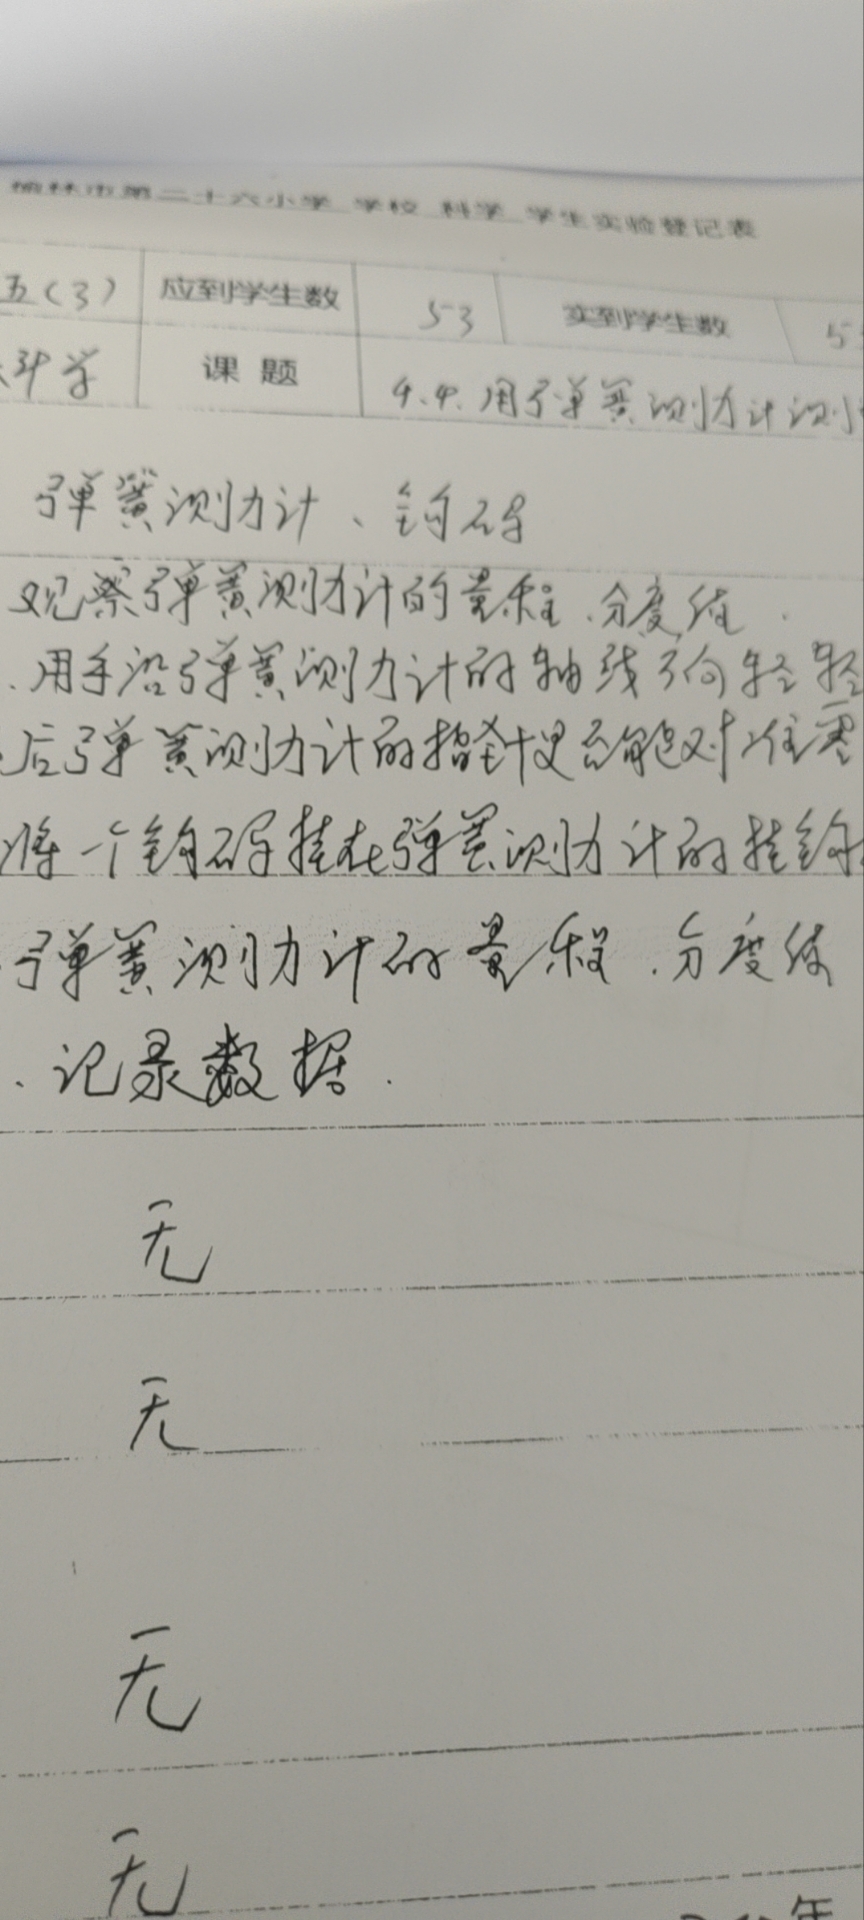 榆林市第二十六小学 学校 科学 学生实验登记表
五(3) 应到学生数 53 实到学生数 5
科学 课题 4.4.用弹簧测力计测
弹簧测力计、钩码
观察弹簧测力计的量程、分度值.
.用手沿弹簧测力计的轴线方向轻轻
后弹簧测力计的指针是否能对准零
将一个钩码挂在弹簧测力计的挂钩
弹簧测力计的量程、分度值
、记录数据.
无
无
无
无
年